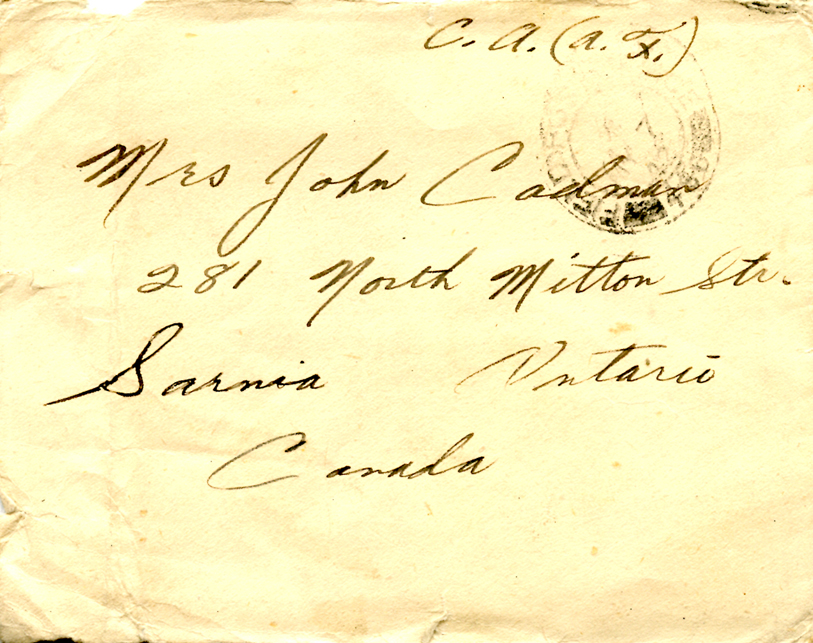 C. A. (A. F.)
Mrs John Cadman
281 North Mitton Str.
Sarnia Ontario
Canada